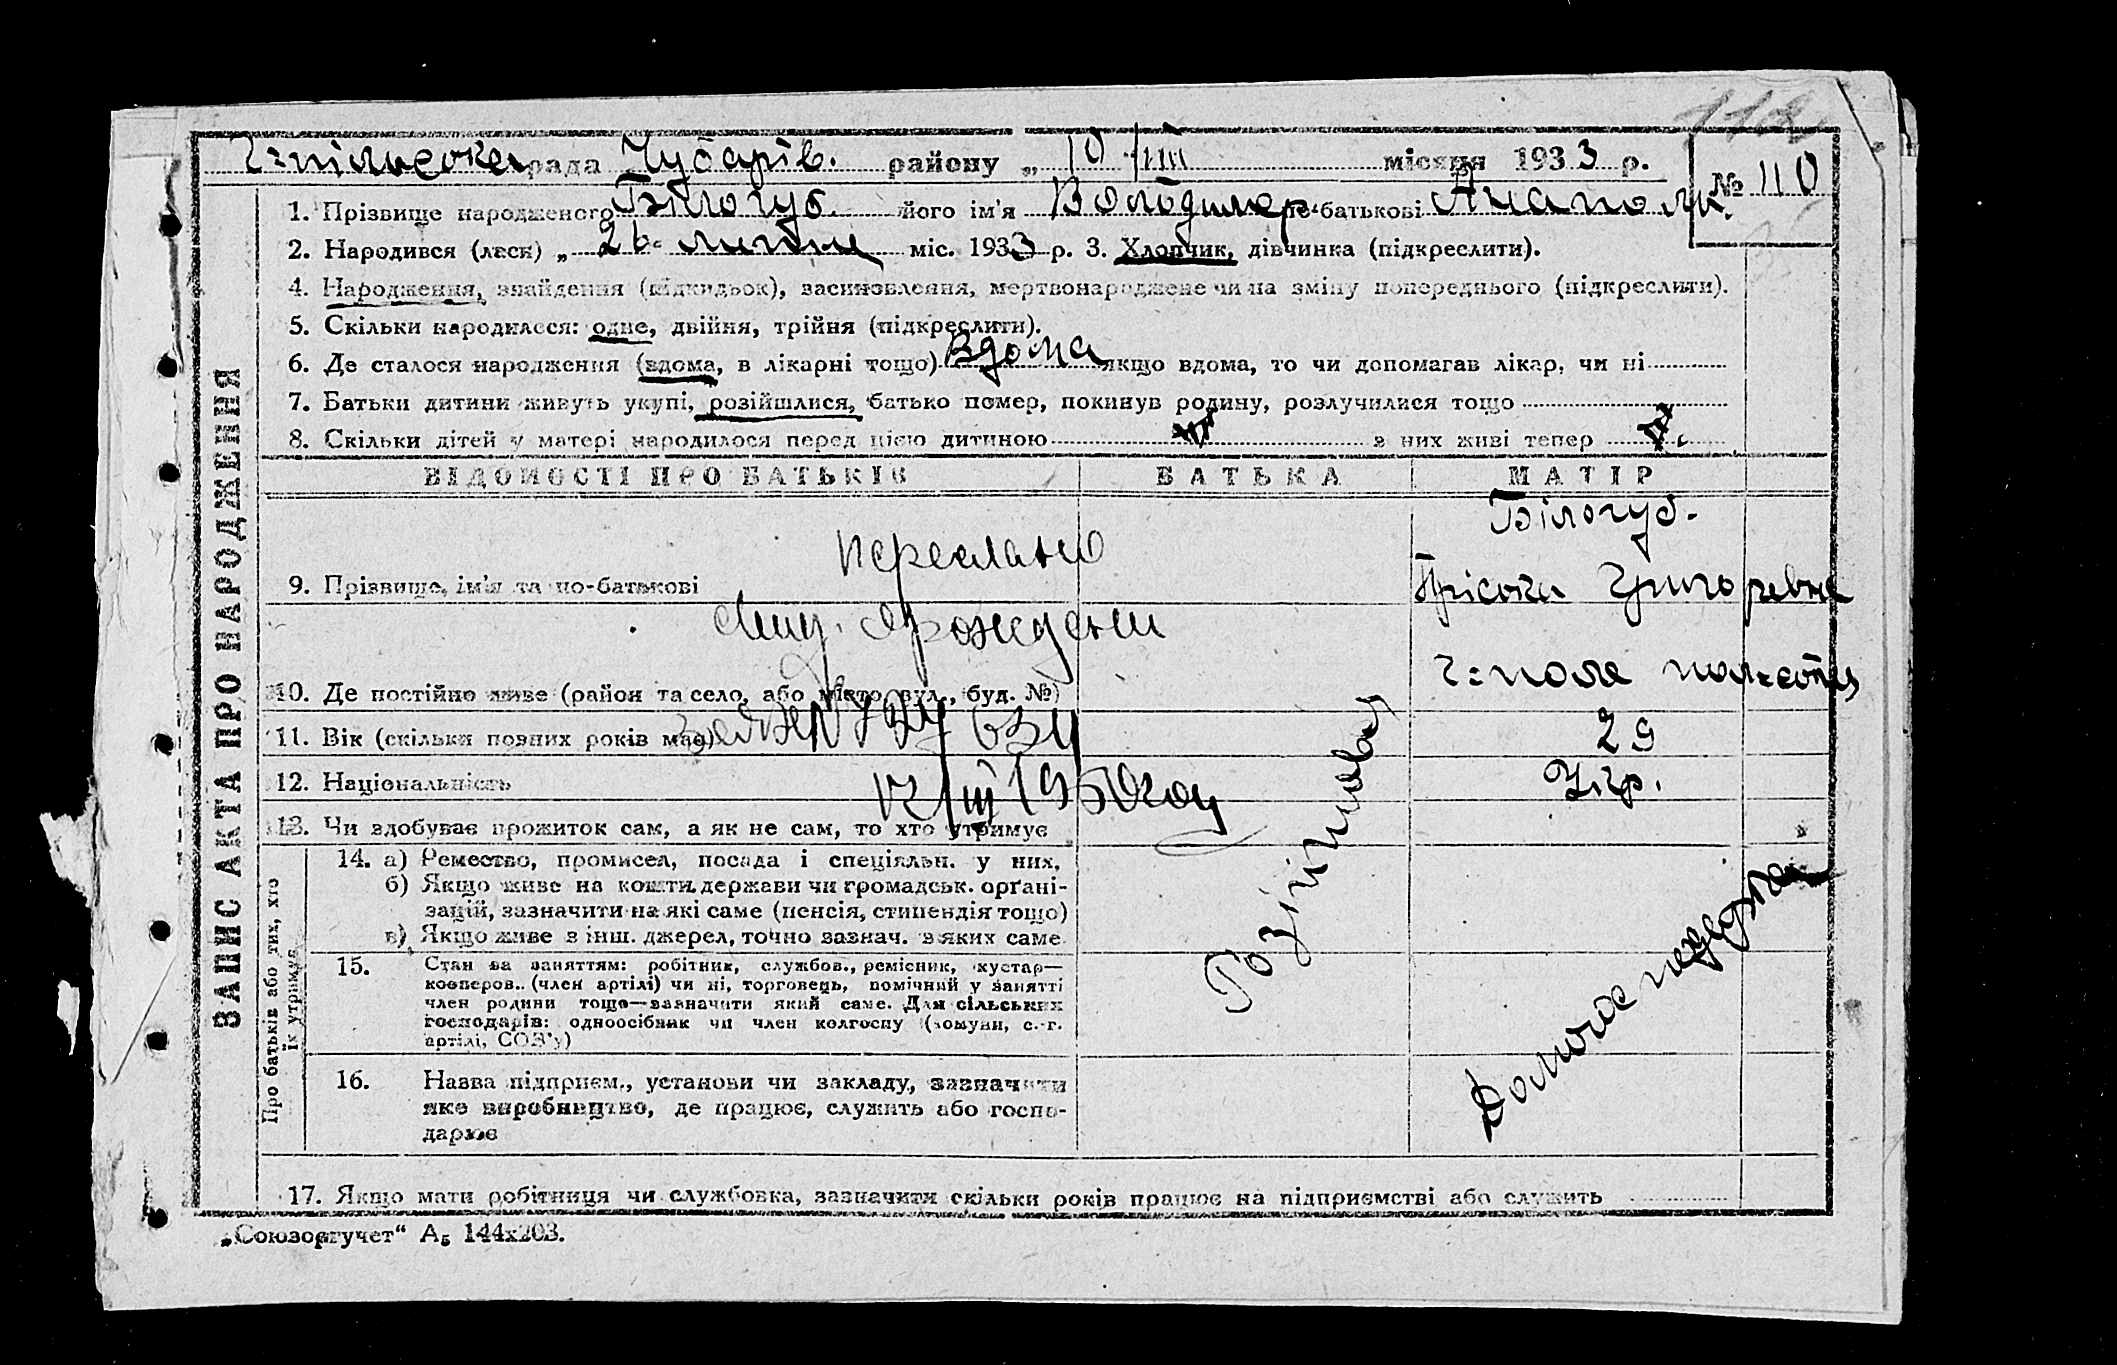 Г=пільська рада Чубарів. району „ 10 /VIII місяця 1933 р.
№ 110
1. Прізвище народженого Білогуб. його ім'я Володимер по-батькові Анатолів.
2. Народився (лася) „ 26 липня міс. 1933 р. 3. Хлопчик, дівчинка (підкреслити).
4. Народження, знайдення (підкидьок), засиновлення, мертвонароджене чи на зміну попереднього (підкреслити).
5. Скільки народилося: одне, двійня, трійня (підкреслити).
6. Де сталося народження (вдома, в лікарні тощо) Вдома якщо вдома, то чи допомагав лікар, чи ні
7. Батьки дитини живуть укупі, розійшлися, батько помер, покинув родину, розлучилися тощо
8. Скільки дітей у матері народилося перед цією дитиною з них живі тепер
ЗАПИС АКТА ПРО НАРОДЖЕННЯ
ВІДОМОСТІ ПРО БАТЬКІВ БАТЬКА МАТІР
Білогуб.
переслано
9. Прізвище, ім'я та по-батькові Пріська Григоревна
10. Де постійно живе (район та село, або місто, вул., буд. №)
11. Вік (скільки повних років має) 29
12. Національність Укр.
12/III 1950 году
13. Чи здобуває прожиток сам, а як не сам, то хто утримує
Розійшовся
Домашня
Про батьків або тих, хто їх утримує
14. а) Ремество, промисел, посада і спеціяльн. у них.
б) Якщо живе на кошти держави чи громадськ. орґані-
зацій, зазначити на які саме (пенсія, стипендія тощо)
в) Якщо живе з інш. джерел, точно зазнач. з яких саме
15. Стан за заняттям: робітник, службов., ремісник, кустар—
кооперов.. (член артілі) чи ні, торговець, помічний у занятті
член родини тощо—зазначити який саме. Для сільських
господарів: одноосібник чи член колгоспу (комуни, с.-г.
артілі, СОЗ'у)
16. Назва підприєм., установи чи закладу, зазначити
яке виробництво, де працює, служить або госпо-
дарює
17. Якщо мати робітниця чи службовка, зазначити скільки років працює на підприємстві або служить
„Союзоргучет“ А₅ 144x203.